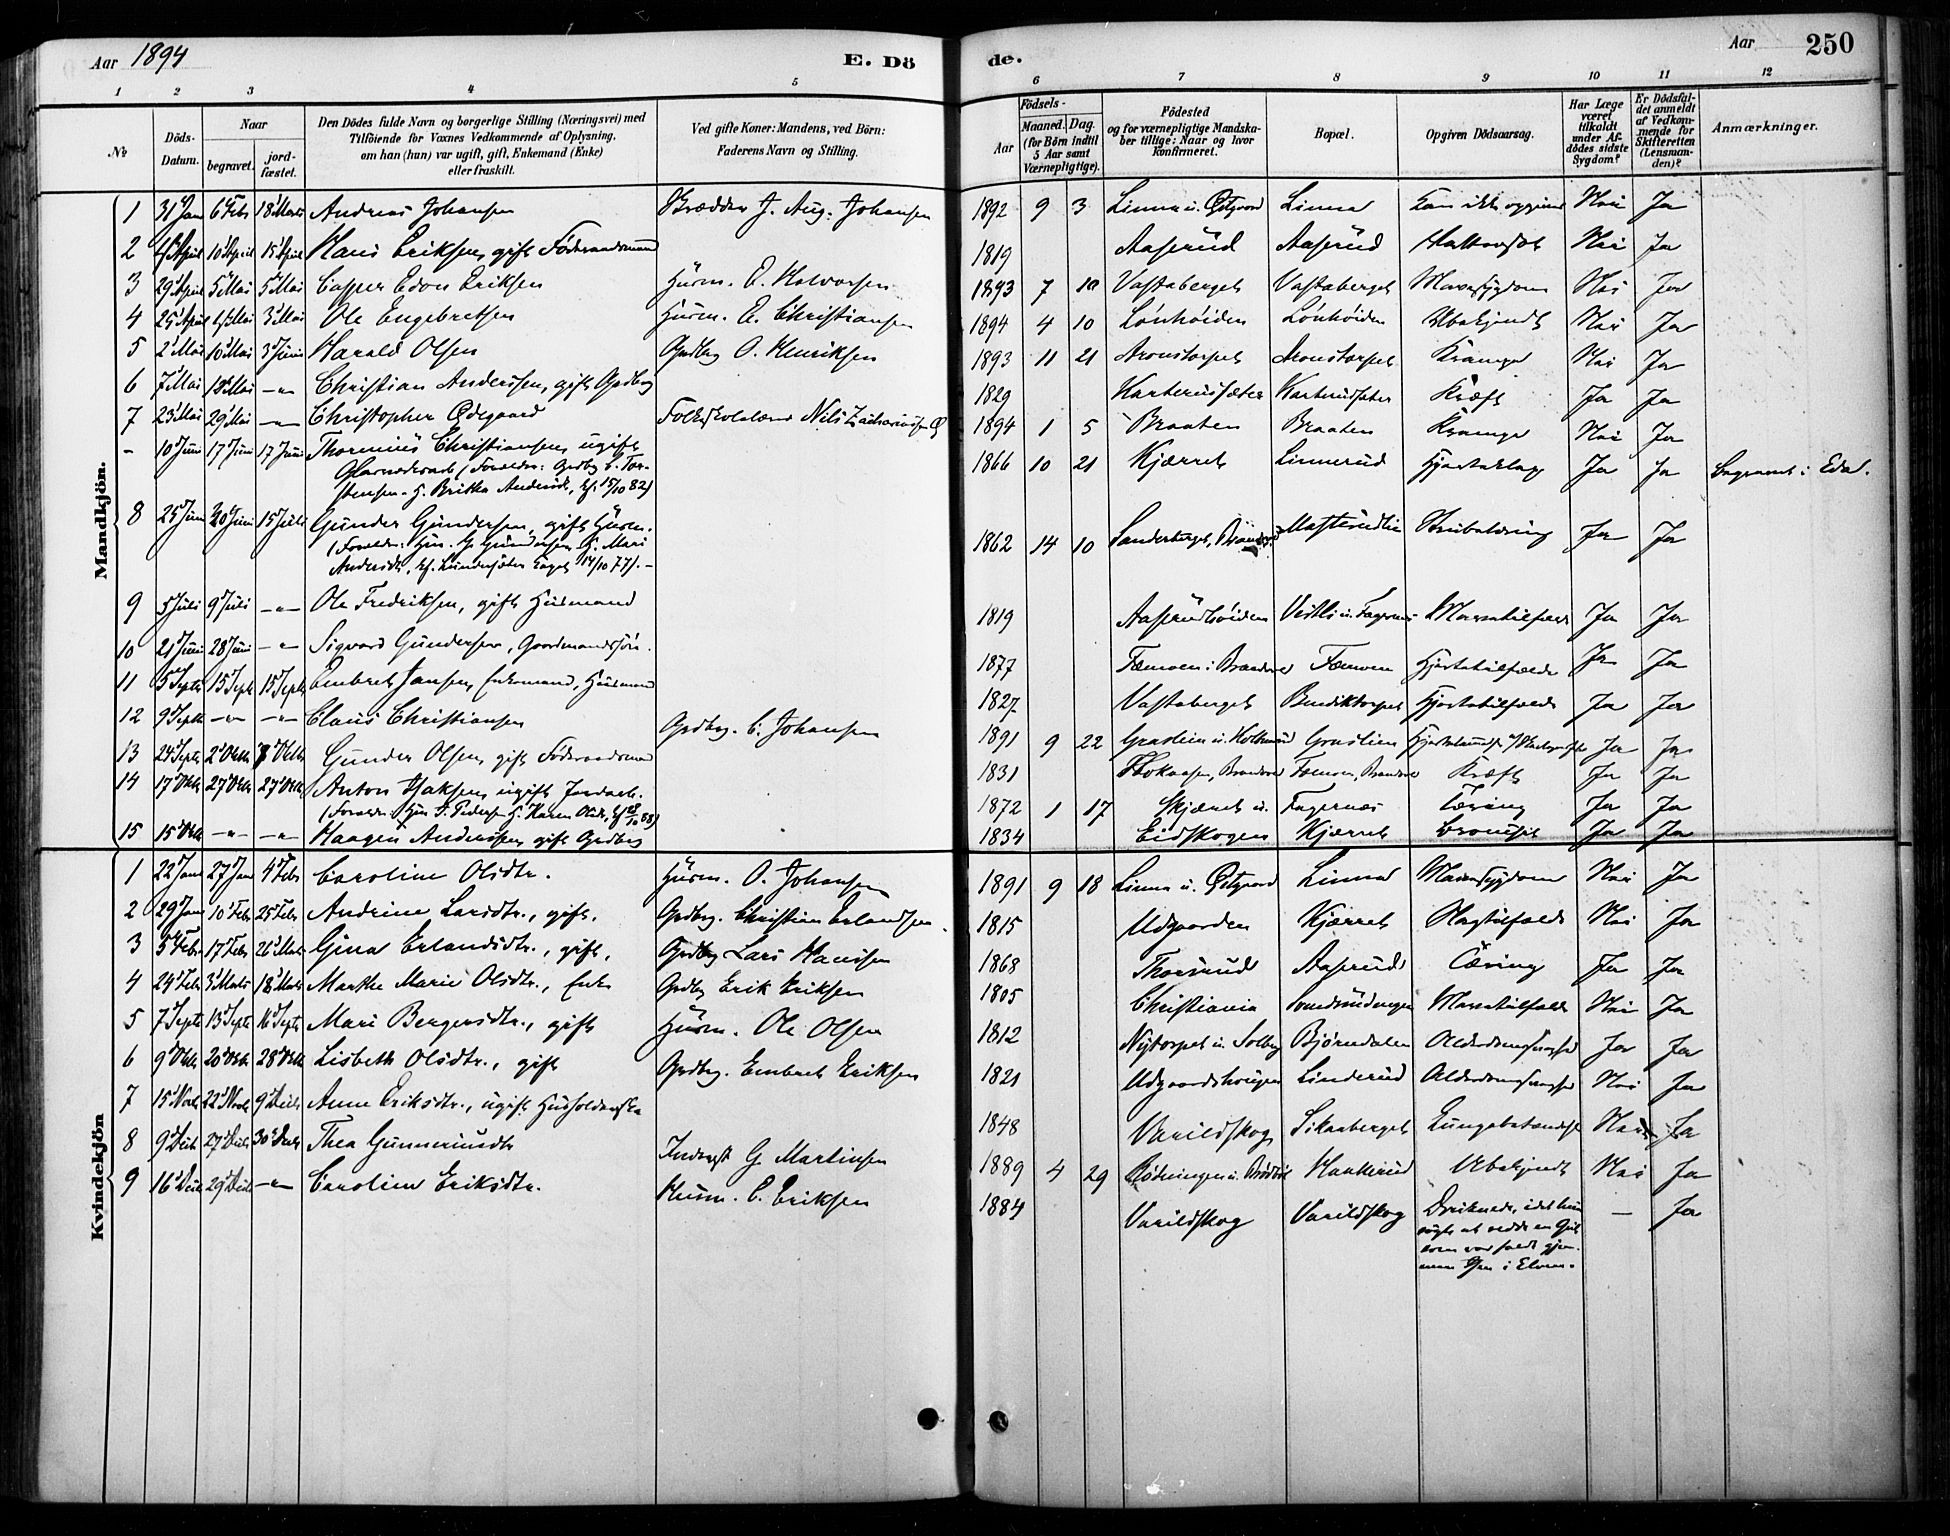 Aar 1894
E. Dö
de.
Aar
250
1 2 3 4 5 6 7 8 9 10 11 12
№
Döds-Datum.
Naar
begravet.
jord-fæstet.
Den Dödes fulde Navn og borgerlige Stilling (Næringsvei) med
Tilföiende for Voxnes Vedkommende af Oplysning,
om han (hun) var ugift, gift, Enkemand (Enke)
eller fraskilt.
Ved gifte Koner: Mandens, ved Börn:
Faderens Navn og Stilling.
Födsels-
Aar
Maaned. Dag.
(for Börn indtil
5 Aar samt
Værnepligtige).
Födested
og for værnepligtige Mandska-
ber tillige: Naar og hvor
Konfirmeret.
Bopæl.
Opgiven Dödsaarsag.
Har Læge
været
tilkaldt
under Af-
dödes sidste
Sygdom?
Er Dödsfal-
det anmeldt
af Vedkom-
mende for
Skifteretten
(Lensman-
den)?
Anmærkninger.
Mandkjön.
1 31 Jan 6 Feb 18 Marts Andreas Johansen J. Aug. Johansen 1892 9 3 Linna u. Linna Kan ikke opgives Nei Ja
2 4 April 10 April 15 April Hans Eriksen, gift Föderaadsmand 1819 Aaserud Aaserud Nei Ja
3 29 April 5 Mai 5 Mai Casper Edon Eriksen Husm. E. Halvorsen 1893 7 10 Vastaberget Vastaberget Mavesygdom Nei Ja
4 25 April 3 Mai Ole Engebretsen Husm. E. Christiansen 1894 4 10 Lönhöiden Lönhöiden Ubekjendt Nei Ja
5 2 Mai 10 Mai 3 Juni Harald Olsen Grdbrg O. Henriksen 1893 11 21 Aronstorpet Aronstorpet Krampe Nei Ja
6 7 Mai 18 Mai -"- Christian Anderssen, gift Grdbrg 1829 Karterudsæter Karterudsæter Kræft Ja Ja
7 23 Mai 29 Mai -"- Christopher Ødegaard Folkeskolelærer Nils Zachariassen Ø 1894 1 5 Braaten Braaten Krampe Nei Ja
- 10 Juni 17 Juni 17 Juni Thorenius Christiansen, ugift 1866 10 21 Kjærret Linnerud Hjerteslag Ja Ja Begravet i Eda.
(Forældre: Grdbrg C. Tor-
stensen, H. Britta Andersdt., kf. 15/10 82)
8 25 Juni 30 Juni 15 Juli Gunder Gundersen, gift Husm. 1862 14 10 Sanderberget, Masterudlia Strubetæring Ja Ja
(Forældr: Hus. G. Gundersen, H. Mari
Andersdt., kf. Lundersæter Eaget 14/10 77).-
9 5 Juli 9 Juli -"- Ole Fredriksen, gift Husmand 1819 Aaserudhöiden Vestli u. Fagernes Mavetilfælde Ja Ja
10 21 Juni 28 Juni -"- Sigvard Gundersen, Gaardmandssön. 1877 Fæmoen i Brandval Fæmoen Hjertetilfælde Ja Ja
11 5 Septr 15 Septr 15 Septr Embret Jansen, Enkemand, Husmand 1827 Vastaberget Benediktorpet Hjertetilfælde Ja Ja
12 9 Septr -"- -"- Claus Christiansen Grdbrg. C. Johansen 1891 9 22 Graslien u. Graslien Ja Ja
13 24 Septr 2 Oktbr 7 Oktbr Gunder Olsen, gift Föderaadsmand 1831 Brandval Fæmoen, Brandval Kræft Ja Ja
14 17 Oktbr 27 Oktbr 27 Oktbr Anton Isaksen, ugift Jordarb. 1872 1 17 Skjærret u. Fagernæs Tæring Ja Ja
(Forældr: Hus I. Pedersen, H. Karen Olsdt., kf. 28/10 88)
15 15 Oktbr -"- -"- Haagen Anderssen, gift Grdbrg 1834 Eidskogen Kjærret Bronchit Ja Ja
Kvindekjön
1 22 Jan 27 Jan 4 Febr Caroline Olsdtr. Husm. O. Johansen 1891 9 18 Linna u. Linna Mavesygdom Nei Ja
2 29 Jan 10 Febr 25 Febr Andrine Larsdtr., gift. Grdbrg. Christian Erlandsen. 1815 Udgaarden Kjærret Slagtilfælde Nei Ja
3 5 Febr 17 Febr 26 Marts Gina Erlandsdtr., gift. Grdbrg Lars Hansen 1868 Thorsrud Aaserud Tæring Ja Ja
4 24 Febr 3 Marts 18 Marts Marthe Marie Olsdtr., Enke Grdbrg Erik Eriksen 1805 Christiania Mavetilfælde Nei Ja
5 7 Septr 13 Septr 16 Septr Mari Bergersdtr., gift Husm. Ole Olsen 1812 Nytorpet u. Solberg Björnedalen Alderdomssvaghed Ja Ja
6 9 Oktbr 20 Oktbr 28 Oktbr Lisbeth Olsdtr., gift Grdbrg. Embret Eriksen 1821 Udgaardshougen Linderud Alderdomssvaghed Nei Ja
7 15 Novbr 22 Novbr 9 Decbr Anne Eriksdtr., ugift Husholderske 1848 Varildskog Sikaaberget Lungebetændelse Nei Ja
8 9 Decbr 27 Decbr 30 Decbr Thea Gunneriusdtr G. Martinsen 1889 4 29 Haakerud Ubekjendt Nei Ja
9 16 Decbr 29 Decbr -"- Caroline Eriksdtr. Husm. C. Eriksen 1884 Varildskog Varildskog Druknede, idet hun — Ja
søgte at redde en Gut
som var faldt gjen-
nem Isen i Elven.